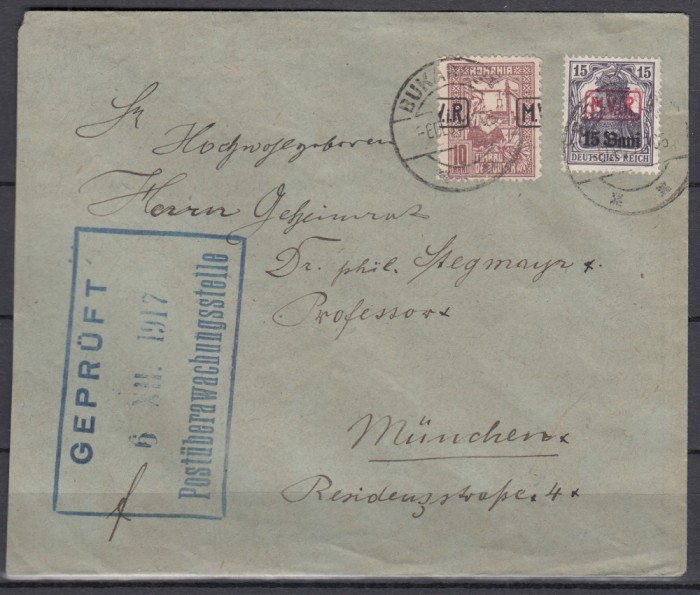 BUKA
ROMANIA
M.V.R
10
TIMBRU
DE AJUTOR
15 15
M.V.R
15 Bani
DEUTSCHES REICH
Sr Hochwohlgeboren
Herrn Geheimrat
Dr. phil. Stegmayr
Professor
München
Residenzstraße 4
GEPRÜFT
6 XII. 1917
Postüberwachungsstelle